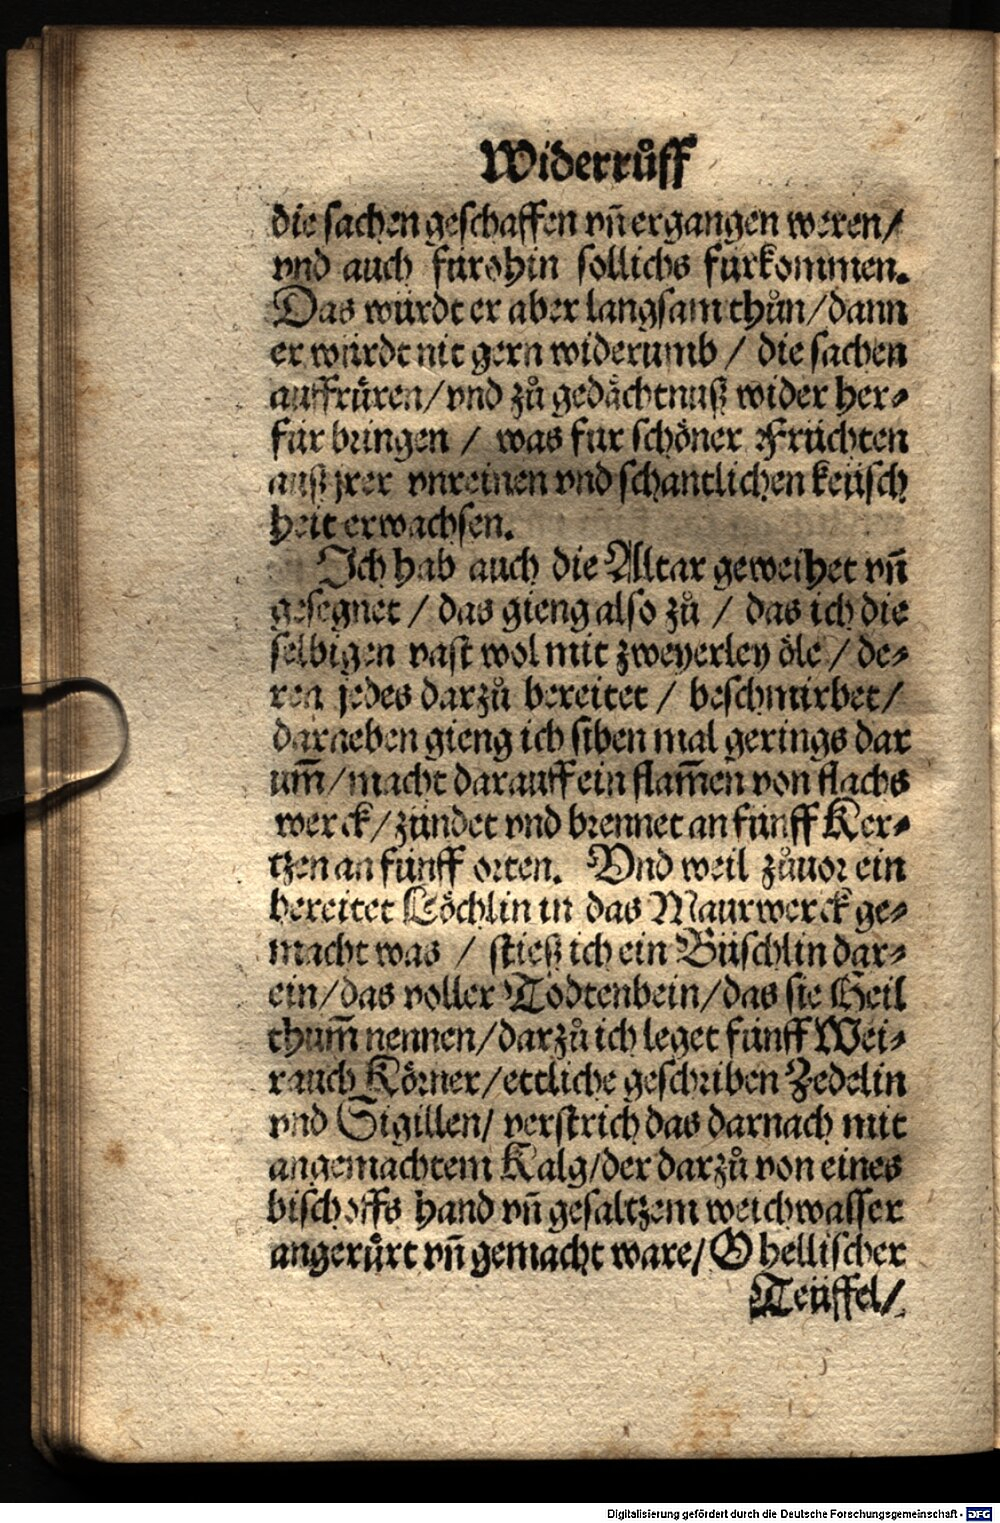 Widerrůff
die sachen geschaffen vñ ergangen weren/
vnd auch fürohin sollichs fürkommen.
Das würdt er aber langsam thůn/dann
er würdt nit gern widerumb / die sachen
auffrüren/vnd zů gedächtnuß wider her⸗
für bringen / was für schöner Früchten
auß jrer vnreinen vnd schantlichen keüsch
heit erwachsen.
Ich hab auch die Altar geweihet vñ
gesegnet / das gieng also zů / das ich die
selbigen vast wol mit zweyerley öle / de⸗
ren jedes darzů bereitet / beschmirbet/
darneben gieng ich siben mal gerings dar
um̃/macht darauff ein flam̃en von flachs
werck/zündet vnd brennet an fünff Ker⸗
tzen an fünff orten. Vnd weil zůuor ein
bereitet Löchlin in das Maurwerck ge⸗
macht was / stieß ich ein Büschlin dar⸗
ein/das voller Todtenbein/das sie Heil
thum̃ nennen/darzů ich leget fünff Wei⸗
rauch Körner/ettliche geschriben Zedelin
vnd Sigillen/ verstrich das darnach mit
angemachtem Kalg/der darzů von eines
bischoffs hand vñ gesaltzem weichwasser
angerůrt vñ gemacht ware/O hellischer
Teüffel/
Digitalisierung gefördert durch die Deutsche Forschungsgemeinschaft - DFG